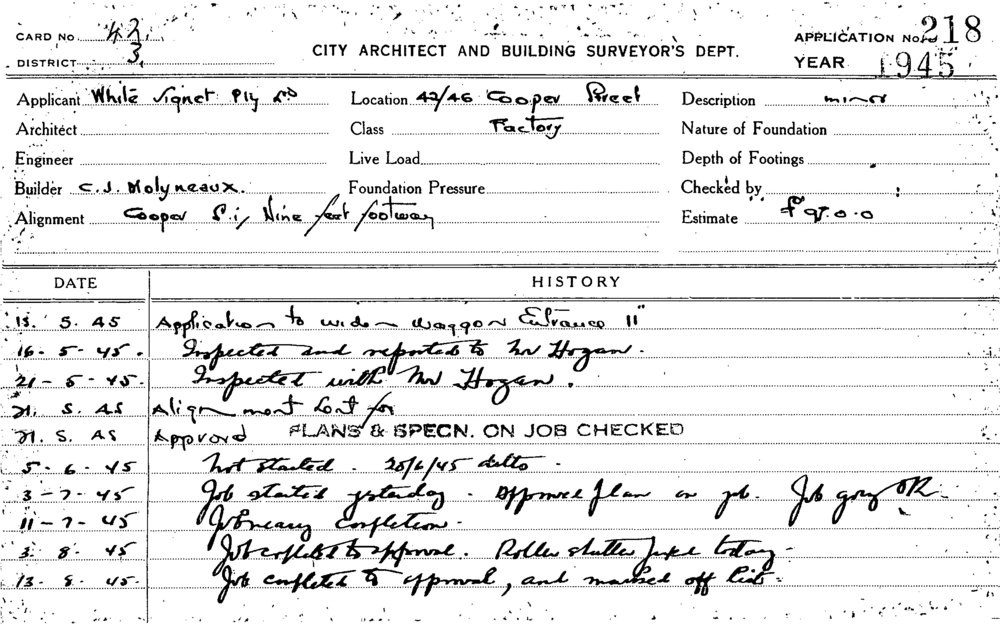 CARD No 42/3
APPLICATION No. 218
DISTRICT
CITY ARCHITECT AND BUILDING SURVEYOR'S DEPT.
YEAR 1945
Applicant White Signet Pty Ld Location 42/46 Cooper Street Description minor
Architect Class Factory Nature of Foundation
Engineer Live Load Depth of Footings
Builder C.J. Molyneaux. Foundation Pressure Checked by
Alignment Cooper St, Nine feet footway Estimate £95.0.0
DATE HISTORY
15. 5. 45 Application to widen waggon Entrance 11"
16 - 5 - 45. Inspected and reported to Mr Hogan.
21 - 5 - 45. Inspected with Mr Hogan.
21. 5. 45 Alignment for
21. 5. 45 Approved PLANS & SPECN. ON JOB CHECKED
5 - 6 - 45 Not started. 20/6/45 ditto.
3 - 7 - 45 Job started yesterday. Approved plan on job. Job going OK.
11 - 7 - 45 Job nearing completion.
3. 8. 45 Job completed to approval. Roller shutter fixed today.
13. 8. 45. Job completed to approval, and marked off list.